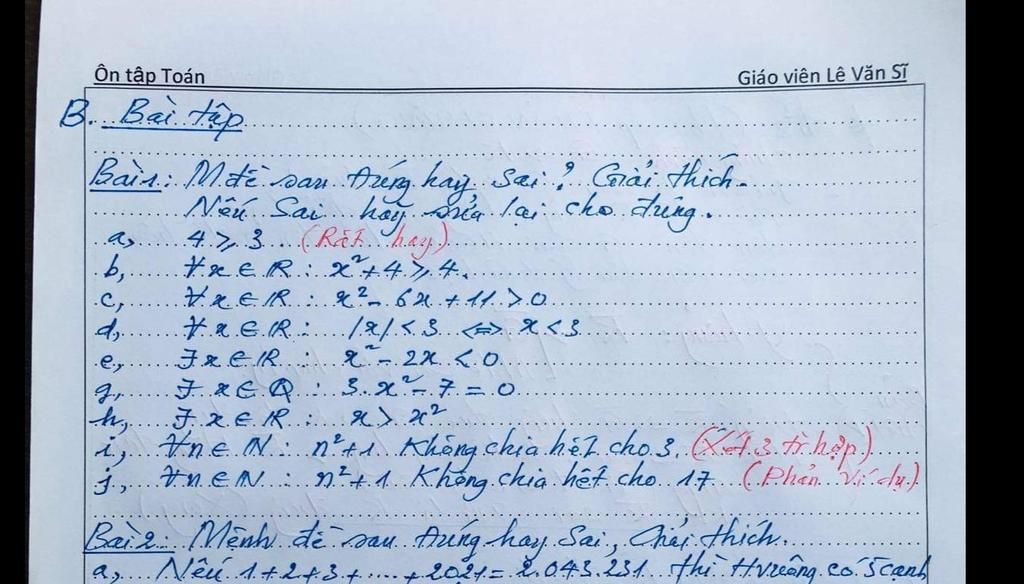 Ôn tập Toán
Giáo viên Lê Văn Sĩ
B. Bài tập
Bài 1: Mđề sau đúng hay sai? Giải thích.
Nếu Sai hãy sửa lại cho đúng.
a, 4 ⩾ 3 (Rất hay)
b, ∀x ∈ R : x² + 4 ⩾ 4.
c, ∀x ∈ R : x² - 6x + 11 > 0
d, ∀x ∈ R : |x| < 3 <=> x < 3
e, ∃x ∈ R : x² - 2x < 0
g, ∃x ∈ Q : 3.x² - 7 = 0
h, ∃x ∈ R : x > x²
i, ∀n ∈ N : n² + 1 Không chia hết cho 3. (Xét 3 tr hợp)
j, ∀n ∈ N : n² + 1 Không chia hết cho 17 (Phản ví dụ)
Bài 2: Mệnh đề sau đúng hay Sai, Giải thích.
a, Nếu 1+2+3+....+2021 = 2.043.231 thì Hvuông có 5 cạnh